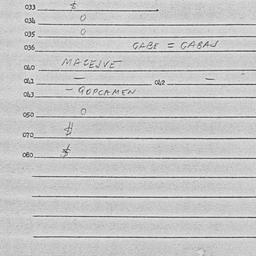 033 $
034 0
035 0
036 GABE = GABAJ
040 MACEJVE
041 — 042 —
043 - GOPCAMEN
050 0
070 $
080 $